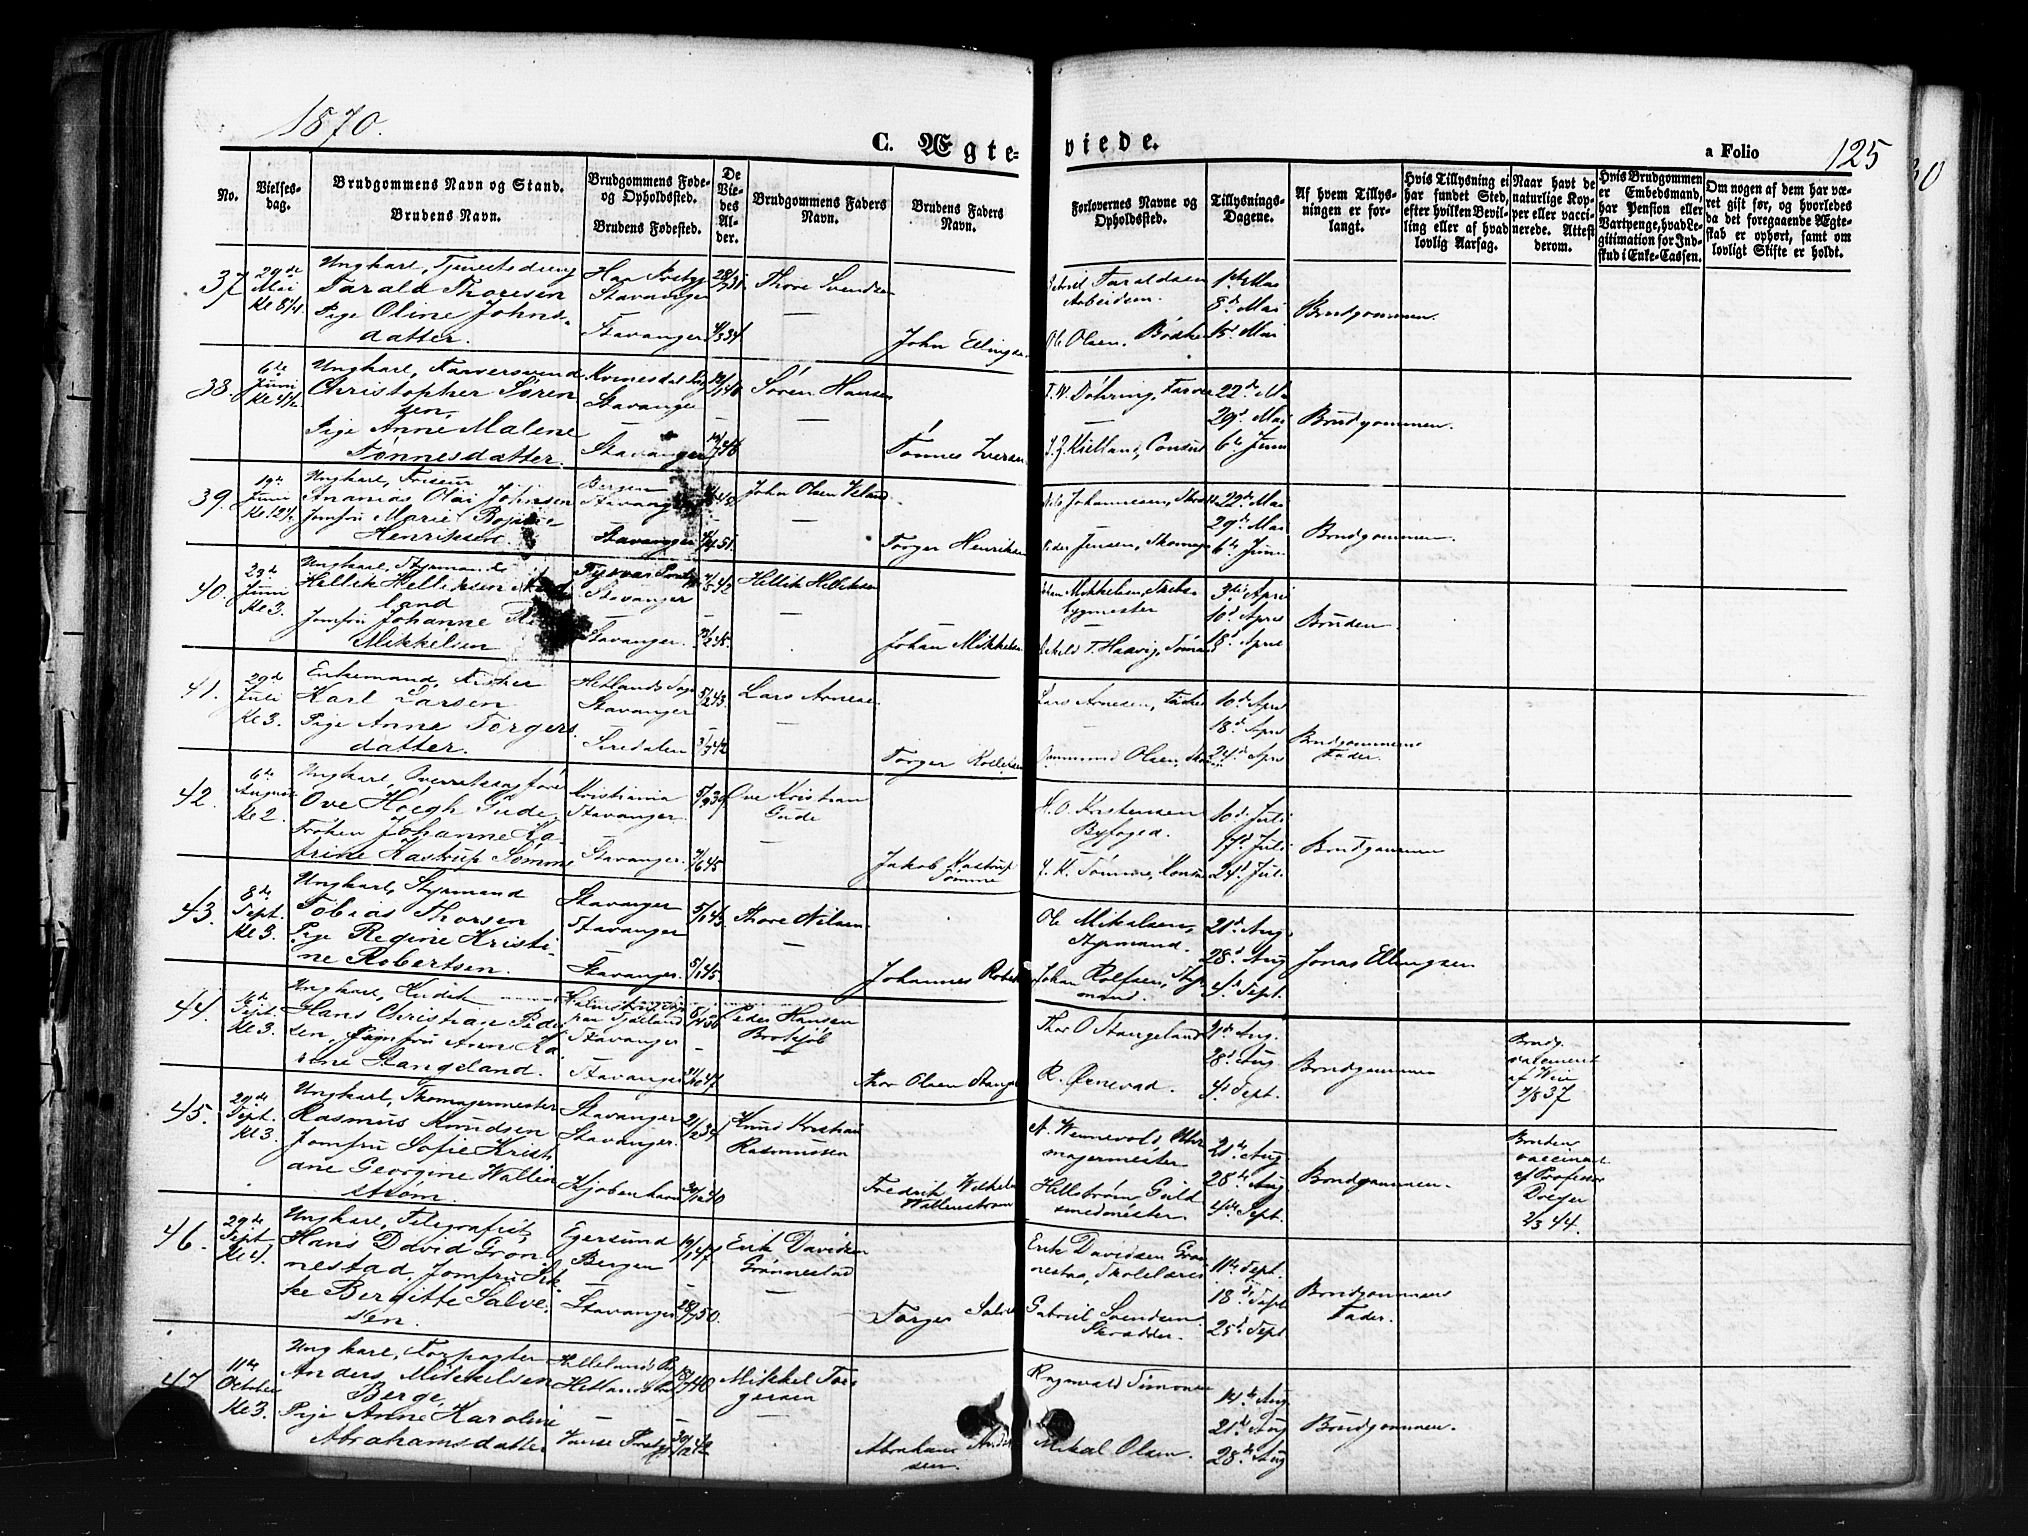 1870.
C. Ægteviede.
a Folio 125
No.
Vielses-
dag.
Brudgommens Navn og Stand.
Brudens Navn.
Brudgommens Føde-
og Opholdssted.
Brudens Fødested.
De
Vie-
des
Al-
der.
Brudgommens Faders
Navn.
Brudens Faders
Navn.
Forlovernes Navne og
Opholdssted.
Tillysnings-
Dagene.
Af hvem Tillys-
ningen er for-
langt.
Hvis Tillysning ei
har fundet Sted,
efter hvilken Bevil-
ling eller af hvad
lovlig Aarsag.
Naar havt de
naturlige Kop-
per eller vacci-
nerede. Attest
derom.
Hvis Brudgommen
er Embedsmand,
har Pension eller
Vartpenge, hvad Le-
gitimation for Ind-
skud i Enke-Cassen.
Om nogen af dem har væ-
ret gift før, og hvorledes
da det foregaaende Ægte-
skab er ophørt, samt om
lovligt Skifte er holdt.
37
29de
Mai
Kl 8 1/4
Ungkarl, Tjenestedreng
Tarald Thoresen
Pige Oline Johns-
datter.
Stavanger
Stavanger
28/7 31
4/3 34
Thore Svendsen
John Ellingsen
Taraldsen
Arbeidsm.
Ole Olsen, Bødker
1ste Mai
8de Mai
15d Mai
Brudgommen.
38.
6te
Juni
Kl 4 1/2
Ungkarl, Farversvend
Christopher Søren
sen,
Pige Anne Malene
Tønnesdatter.
Kvinesdal
Stavanger
Stavanger
Søren Hansen
Tønnes Iversen
T. W. Döhring, Farver
Kielland, Consul
22de Mai
29d Mai
6te Juni
Brudgommen.
39.
19de
Juni
Kl 12 1/2
Ungkarl, Friseur
Ananias Olai Johnsen
Jomfru Marie Bojsine
Henriksen.
Bergen
Stavanger
Stavanger
John Olsen Veland
Torger Henriksen
Johannesen,
Peder Jensen, Skomag
22de Mai
29de Mai
6te Juni
Brudgommen
40.
29de
Juni
Kl 3.
Ungkarl, Styrmand
Hellik Helliksen
land
Jomfru Johanne
Mikkelsen
Stavanger
Stavanger.
Hellik Helliksen
Johan Mikkelsen
Johan Mikkelsen, Skibs-
bygmester
T. Haavig,
3die April
10d April
18d April
Bruden.
41.
29de
Juli
Kl 3.
Enkemand, Fisker
Karl Larsen
Pige Anne Torgers
datter.
Hetlands Sogn
Stavanger
Siredalen
5/2 43
3/7 42
Lars Arnesen
Torger
Lars Arnesen, Fisker
Ommund Olsen,
10d Apr
18d Apr
24d Apr
Brudgommens
Fader.
42.
6te
August
Kl 2.
Ungkarl, Overretssagfører
Ove Höegh Gude,
Frøken Johanne Ka-
trine Kastrup Sømme
Kristiania
Stavanger
Stavanger.
5/9 39
7/6 45
Ove Kristian
Gude
Jakob Kastrup
Sømme
Kristensen
Byfoged.
Sømme, Konsul
10d Juli
17d Juli
24d Juli
Brudgommen
43.
8de
Sept.
Kl 3.
Ungkarl, Styrmand
Tobias Thorsen
Pige Regine Kristi-
ne Robertsen.
Stavanger
Stavanger
Stavanger.
5/1 45
5/1 45.
Thore Nilsen
Johannes Robert
Ole Mikalsen,
Styrmand.
Johan Rolfsen, Styr
mand.
21d Aug.
28d Aug
4d Sept.
Jonas Ellingsen
44.
Sept.
Kl 3.
Ungkarl,
Hans Christian Peder
sen, Jomfru Anne Ka-
rine Stangeland.
Stavanger
Stavanger
31/10 47
Peder Hansen
Thor Olsen Stange
Thor O Stangeland
R. Ørnevad.
21de Aug.
28d Aug.
4d Sept.
Brudgommen
Brudg.
vaccineret
af
7/8 37
45.
29de
Sept.
Kl 3.
Ungkarl, Skomagermester
Rasmus Knudsen
Jomfru Sofie Kristi
ane Georgine Wallen
strøm.
Stavanger
Stavanger.
Kjøbenhavn
21/12 34
30/12 40
Knud Kristian
Rasmussen
Fredrik Wilhelm
Wallenstrøm
A. Wennevold, Uhr
magermester
Hellstrøm, Guld
smedmester.
21de Aug.
28de Aug
4de Sept.
Brudgommen.
Bruden
vaccineret
af Professor
2/3 44.
46.
29de
Sept
Kl 4.
Ungkarl, Telegrafist,
Hans David Grøn
nestad, Jomfru Sik
ke Bergitte Salve
sen.
Egersund
Bergen
Stavanger
19/1 47
28/7 50.
Erik Davidsen
Grønnestad
Torger Salve
Erik Davidsen Grøn
nestad, Skolelærer
Gabriel Svendsen
Skrædder.
11te Sept.
18de Sept
25d Sept
Brudgommens
Fader.
47.
11te
October
Kl 3.
Ungkarl, Forpagter
Anders Mikkelsen
Berge,
Pige Anne Karoline
Abrahamsdatter
Hetlands
Mikkel Tor
gersen
Abraham Ander
sen.
Ragnvald Simonsen
Mikal Olsen.
14de Aug
21de Aug
28de Aug
Brudgommen.